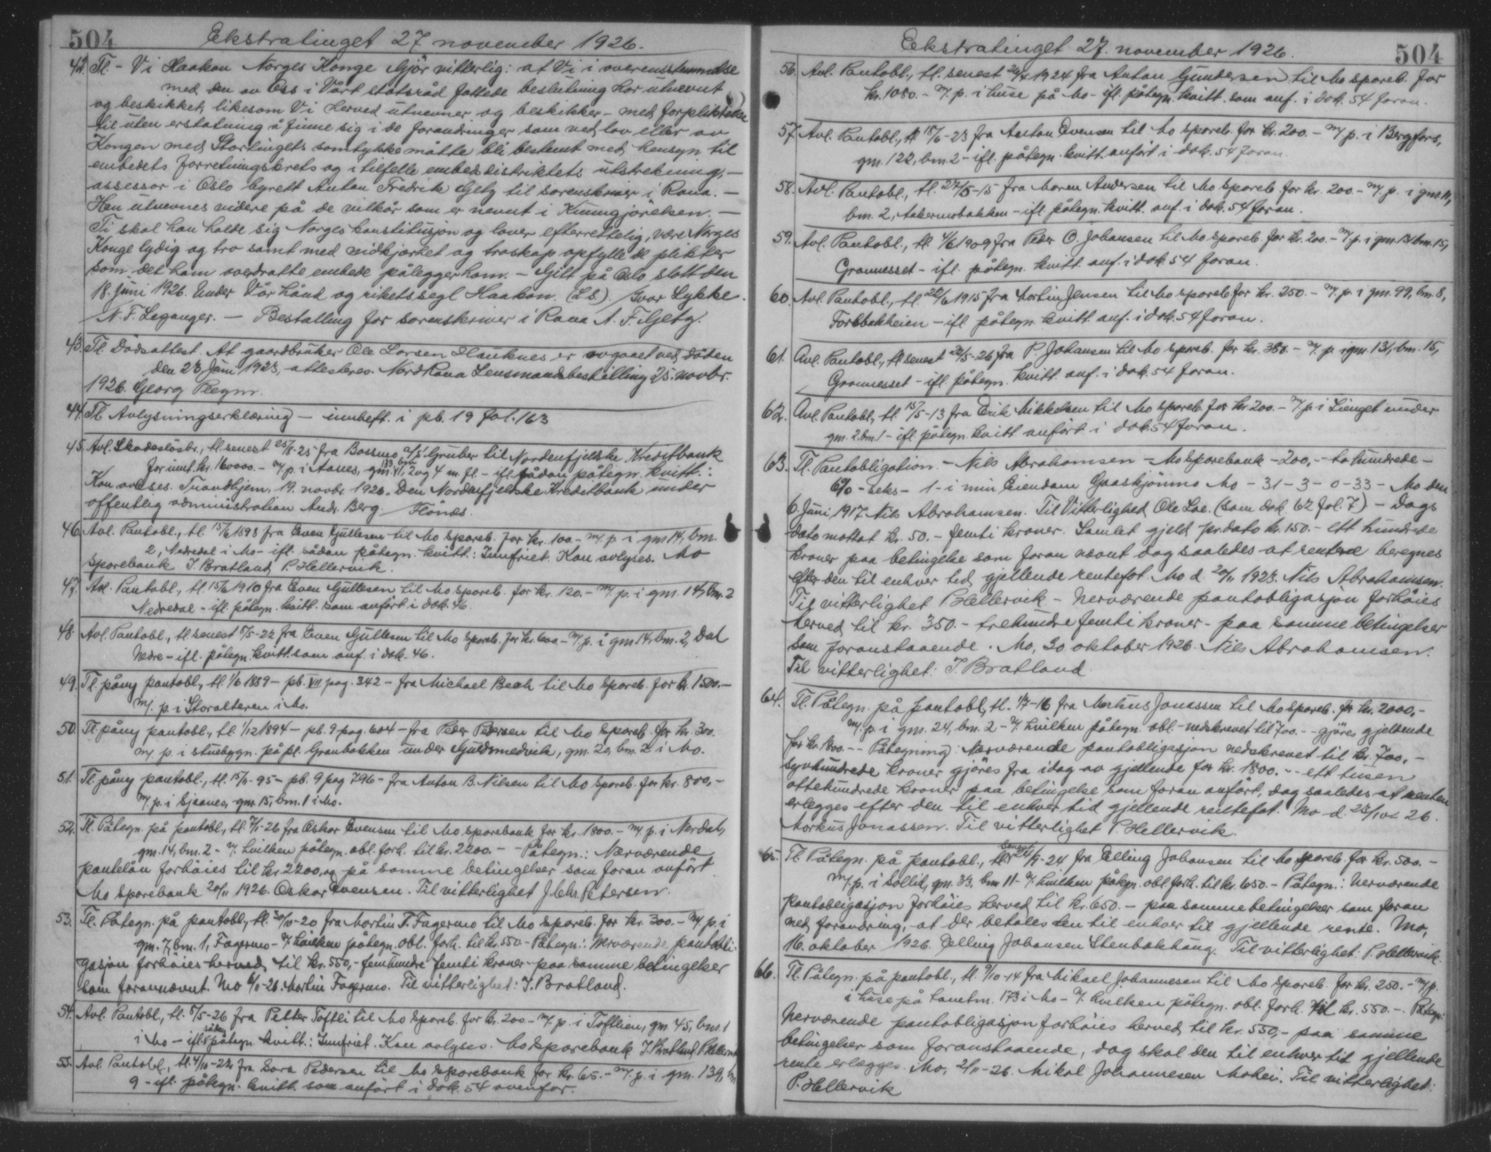 504
Ekstratinget 27 november 1926.
42. Tl. - Vi Haakon Norges Konge Gjör vitterlig: at Vi i overensstemmelse
med den av Oss i Vårt statsråd fattede beslutning har utnevnt
og beskikket, likesom Vi herved utnevner og beskikker - med forpliktelse
til uten erstatning å finne sig i de forandringer som ved lov eller av
Kongen med Stortingets samtykke måtte bli bestemt med hensyn til
embedets forretningskrets og i tilfelle embedsdistriktets utstrekning, -
assessor i Oslo byrett Anton Fredrik Gjetz til sorenskriver i Rana. -
Han utnevnes videre på de vilkår som er nevnt i Kunngjörelsen. -
Ti skal han holde sig Norges konstitusjon og lover efterrettelig, være Norges
Konge lydig og tro samt med nidkjærhet og troskap opfylle de plikter
som det ham overdratte embede pålegger ham. - Gitt på Oslo slott den
18. juni 1926. Under Vår hånd og rikets segl Haakon. (L.S.) Ivar Lykke.
N. F. Leganger. - Bestalling for sorenskriver i Rana A. F. Gjetz.
43. Tl. Dødsattest. At gaardbruker Ole Larsen Hauknes er avgaaet ved döden
den 23. juni 1923, attesteres. Nord Rana Lensmandsbestilling 25. novbr.
1926 Georg
44. Tl. Avlysningserklæring - innheft. i pb. 19 fol. 163
45. Avl. Skadesløsbr., tl. senest 25/8-25 fra Bossmo a/s Gruber til Nordenfjeldske Kreditbank
for inntil kr. 16000.- m/p. i Aanes, gm. 11, 2 og 4 m. fl. - ifl. sådan påtegn. kvitt.:
Kan avlyses. Trondhjem, 19. novbr 1926. Den Nordenfjeldske Kreditbank under
offentlig administration Andr. Berg
46. Avl. Pantobl., tl. 13/6 1893 fra Even Gullesen til Mo spareb. for kr. 100.- m/p. i gm. 14, bm.
2, Nedredal i Mo - ifl. sådan påtegn. kvitt.: Innfriet. Kan avlyses. Mo
Sparebank I Bratland P. Hellervik.
47. Avl. Pantobl., tl. 15/6 1910 fra Even Gullesen til Mo spareb. for kr. 120.- m/p. i gm. 14, bm. 2
Nedredal - ifl. påtegn. kvitt. som anfört i dok. 46.
48. Avl. Pantobl., tl. senest 5/5-22 fra Even Gullesen til Mo spareb. for kr. 600.- m/p. i gm. 14, bm. 2, Dal
Nedre - ifl. påtegn. kvitt. som anf. i dok. 46.
49. Tl. påny pantobl., tl. 1/6 1889 - pb. VII pag. 342 - fra Michael Beck til Mo spareb. for kr. 1500.-
m/p. i Storalteren i Mo.
50. Tl. påny pantobl., tl. 1/12 1894 - pb. 9 pag. 604 - fra Peder Pedersen til Mo spareb. for kr. 300
m/p. i stuebygn. på pl. Granbakken under Guldsmedvik, gm. 20, bm. 2 i Mo.
51. Tl. påny pantobl., tl. 15/5-95 - pb. 9 pag 746 - fra Anton B. Nilsen til Mo spareb. for kr. 800,-
m/p. i Sjaanes, gm. 15, bm. 1 i Mo.
52. Tl. Påtegn. på pantobl., tl. fra Oskar Evensen til Mo sparebank for kr. 1800.- m/p. i Nerdal,
gm. 14, bm. 2 - v/ hvilken påtegn. obl. forh. til kr. 2200.- - Påtegn.: Nærværende
pantelån forhöies til kr. 2200,- på samme betingelser som foran anfört
Mo sparebank 20/11 1926. Oskar Evensen. Til vitterlighet J. Chr. Petersen.
53. Tl. Påtegn. på pantobl., tl. 30/10-20 fra Martin T. Fagermo til Mo spareb. for kr. 300.- m/p. i
gm. 7, bm. 1, Fagermo - v/ hvilken påtegn. obl. forh. til kr. 550 - Påtegn.: Nærværende pantobli-
gasjon forhöies herved til kr. 550,- femhundre femti kroner - paa samme betingelser
som forannævnt. Mo 6/11-26. Martin Fagermo. Til vitterlighet: I. Bratland.
54. Avl. Pantobl., tl. 5/5-26 fra Petter Toftli til Mo spareb. for kr. 200.- m/p. i Toftlien, gm. 45, bm. 1
i Mo - ifl. sådan påtegn. kvitt.: Innfriet. Kan avlyses. Mo sparebank I. Bratland P. Hellervik
55. Avl. Pantobl., tl. 4/10-22, fra Lars Pedersen til Mo sparebank for kr. 65.- m/p. i gm. 139, bm.
9 - ifl. påtegn. kvitt. som anfört i dok. 54 ovenfor.
Ekstratinget 27 november 1926.
504
56. Avl. Pantobl., tl. senest 1924 fra Anton Gundersen til Mo spareb. for
kr. 1080.- m/p. i huse på Mo - ifl. påtegn. kvitt. som anf. i dok. 54 foran.
57. Avl. Pantobl., tl. 15/6-23 fra Anton Evensen til Mo spareb. for kr. 200.- m/p. i Bergfors,
gm. 122, bm. 2 - ifl. påtegn. kvitt. anfört i dok. 54 foran.
58. Avl. Pantobl., tl. 27/5-15 fra Maren Andersen til Mo spareb. for kr. 200.- m/p. i gm. 11,
bm. 2, Aakermobakken - ifl. påtegn. kvitt. anf. i dok. 54 foran.
59. Avl. Pantobl., tl. 4/6 1909 fra Peder O. Johansen til Mo spareb. for kr. 200.- m/p. i gm. 131, bm. 15,
Grannesset - ifl. påtegn. kvitt. anf. i dok. 54 foran.
60. Avl. Pantobl., tl. 22/6 1915 fra Martin Jensen til Mo spareb. for kr. 250.- m/p. i gm. 99, bm. 8,
Forsbakheien - ifl. påtegn. kvitt. anf. i dok. 54 foran.
61. Avl. Pantobl., tl. senest 20/5-26 fra P. Johansen til Mo spareb. for kr. 380.- m/p. i gm. 131, bm. 15,
Grannesset - ifl. påtegn. kvitt. anf. i dok. 54 foran.
62. Avl. Pantobl., tl. 15/5-13 fra Erik Mikkelsen til Mo spareb. for kr. 200.- m/p. i Linget under
gm. 2, bm. 1 - ifl. påtegn. kvitt. anfört i dok. 54 foran.
63. Tl. Pantobligation. - Nils Abrahamsen - Mo Sparebank - 200,- tohundrede -
6% - seks - 1 - i min Eiendom Graskjønmo Mo - 31 - 3 - 0 - 33 - Mo den
6. Juni 1917. Nils Abrahamsen. Til Vitterlighed Ole Los. (som dok 62 fol. 7) - Dags
dato mottat kr. 50,- femti kroner. Samlet gjeld pr. dato kr. 150.- ett hundrede
kroner paa betingelse som foran nævnt dog saaledes at rentene beregnes
efter den til enhver tid gjellende rentefot Mo d. 20/11 1923. Nils Abrahamsen.
Til vitterlighet P. Hellervik - Nærværende pantobligasjon forhöies
herved til kr. 350 - trehundre femti kroner - paa samme betingelser
som foranstaaende. Mo, 30 oktober 1926. Nils Abrahamsen.
Til vitterlighet: I Bratland
64. Tl. Påtegn. på pantobl., tl. -16 fra Markus Jonassen til Mo spareb. for kr. 2000,-
m/p. i gm. 24, bm. 2 - v/ hvilken påtegn. obl. nedskrevet til 700.- - gjöres gjeldende
for kr. 1800.- - Påtegning: Nærværende pantobligasjon nedskrevet til kr. 700,-
syvhundrede kroner gjöres fra idag av gjellende for kr. 1800.- - ett tusen
ottehundrede kroner paa betingelse som foran anfört, dog saaledes at renten
erlegges efter den til enhver tid gjellende rentefot. Mo d. 23/10 26.
Markus Jonassen. Til vitterlighet P. Hellervik.
65. Tl. Påtegn. på pantobl., tl. senest -24 fra Elling Johansen til Mo spareb. for kr. 500.-
m/p. i Sollid, gm. 33, bm. 11 - v/ hvilken påtegn. obl. forh. til kr. 650.- Påtegn.: Nærværende
pantobligasjon forhöies herved til kr. 650.- paa samme betingelser som foran
med forandring, at der betales den til enhver tid gjellende rente. Mo,
16. oktober 1926. Elling Johansen Stenbakhaug. Til vitterlighet: P. Hellervik.
66. Tl. Påtegn. på pantobl., tl. 7/10-14 fra Mikael Johannesen til Mo spareb. for kr. 250.- m/p.
i huse på tomtnr. 173 i Mo - v/ hvilken påtegn. obl. forh. til kr. 550.- Påtegn.:
Nærværende pantobligasjon forhöies herved til kr. 550,- paa samme
betingelser som foranstaaende, dog skal den til enhver tid gjellende
rente erlegges. Mo, 2/11-26. Mikal Johannesen Mohei. Til vitterlighet:
P. Hellervik